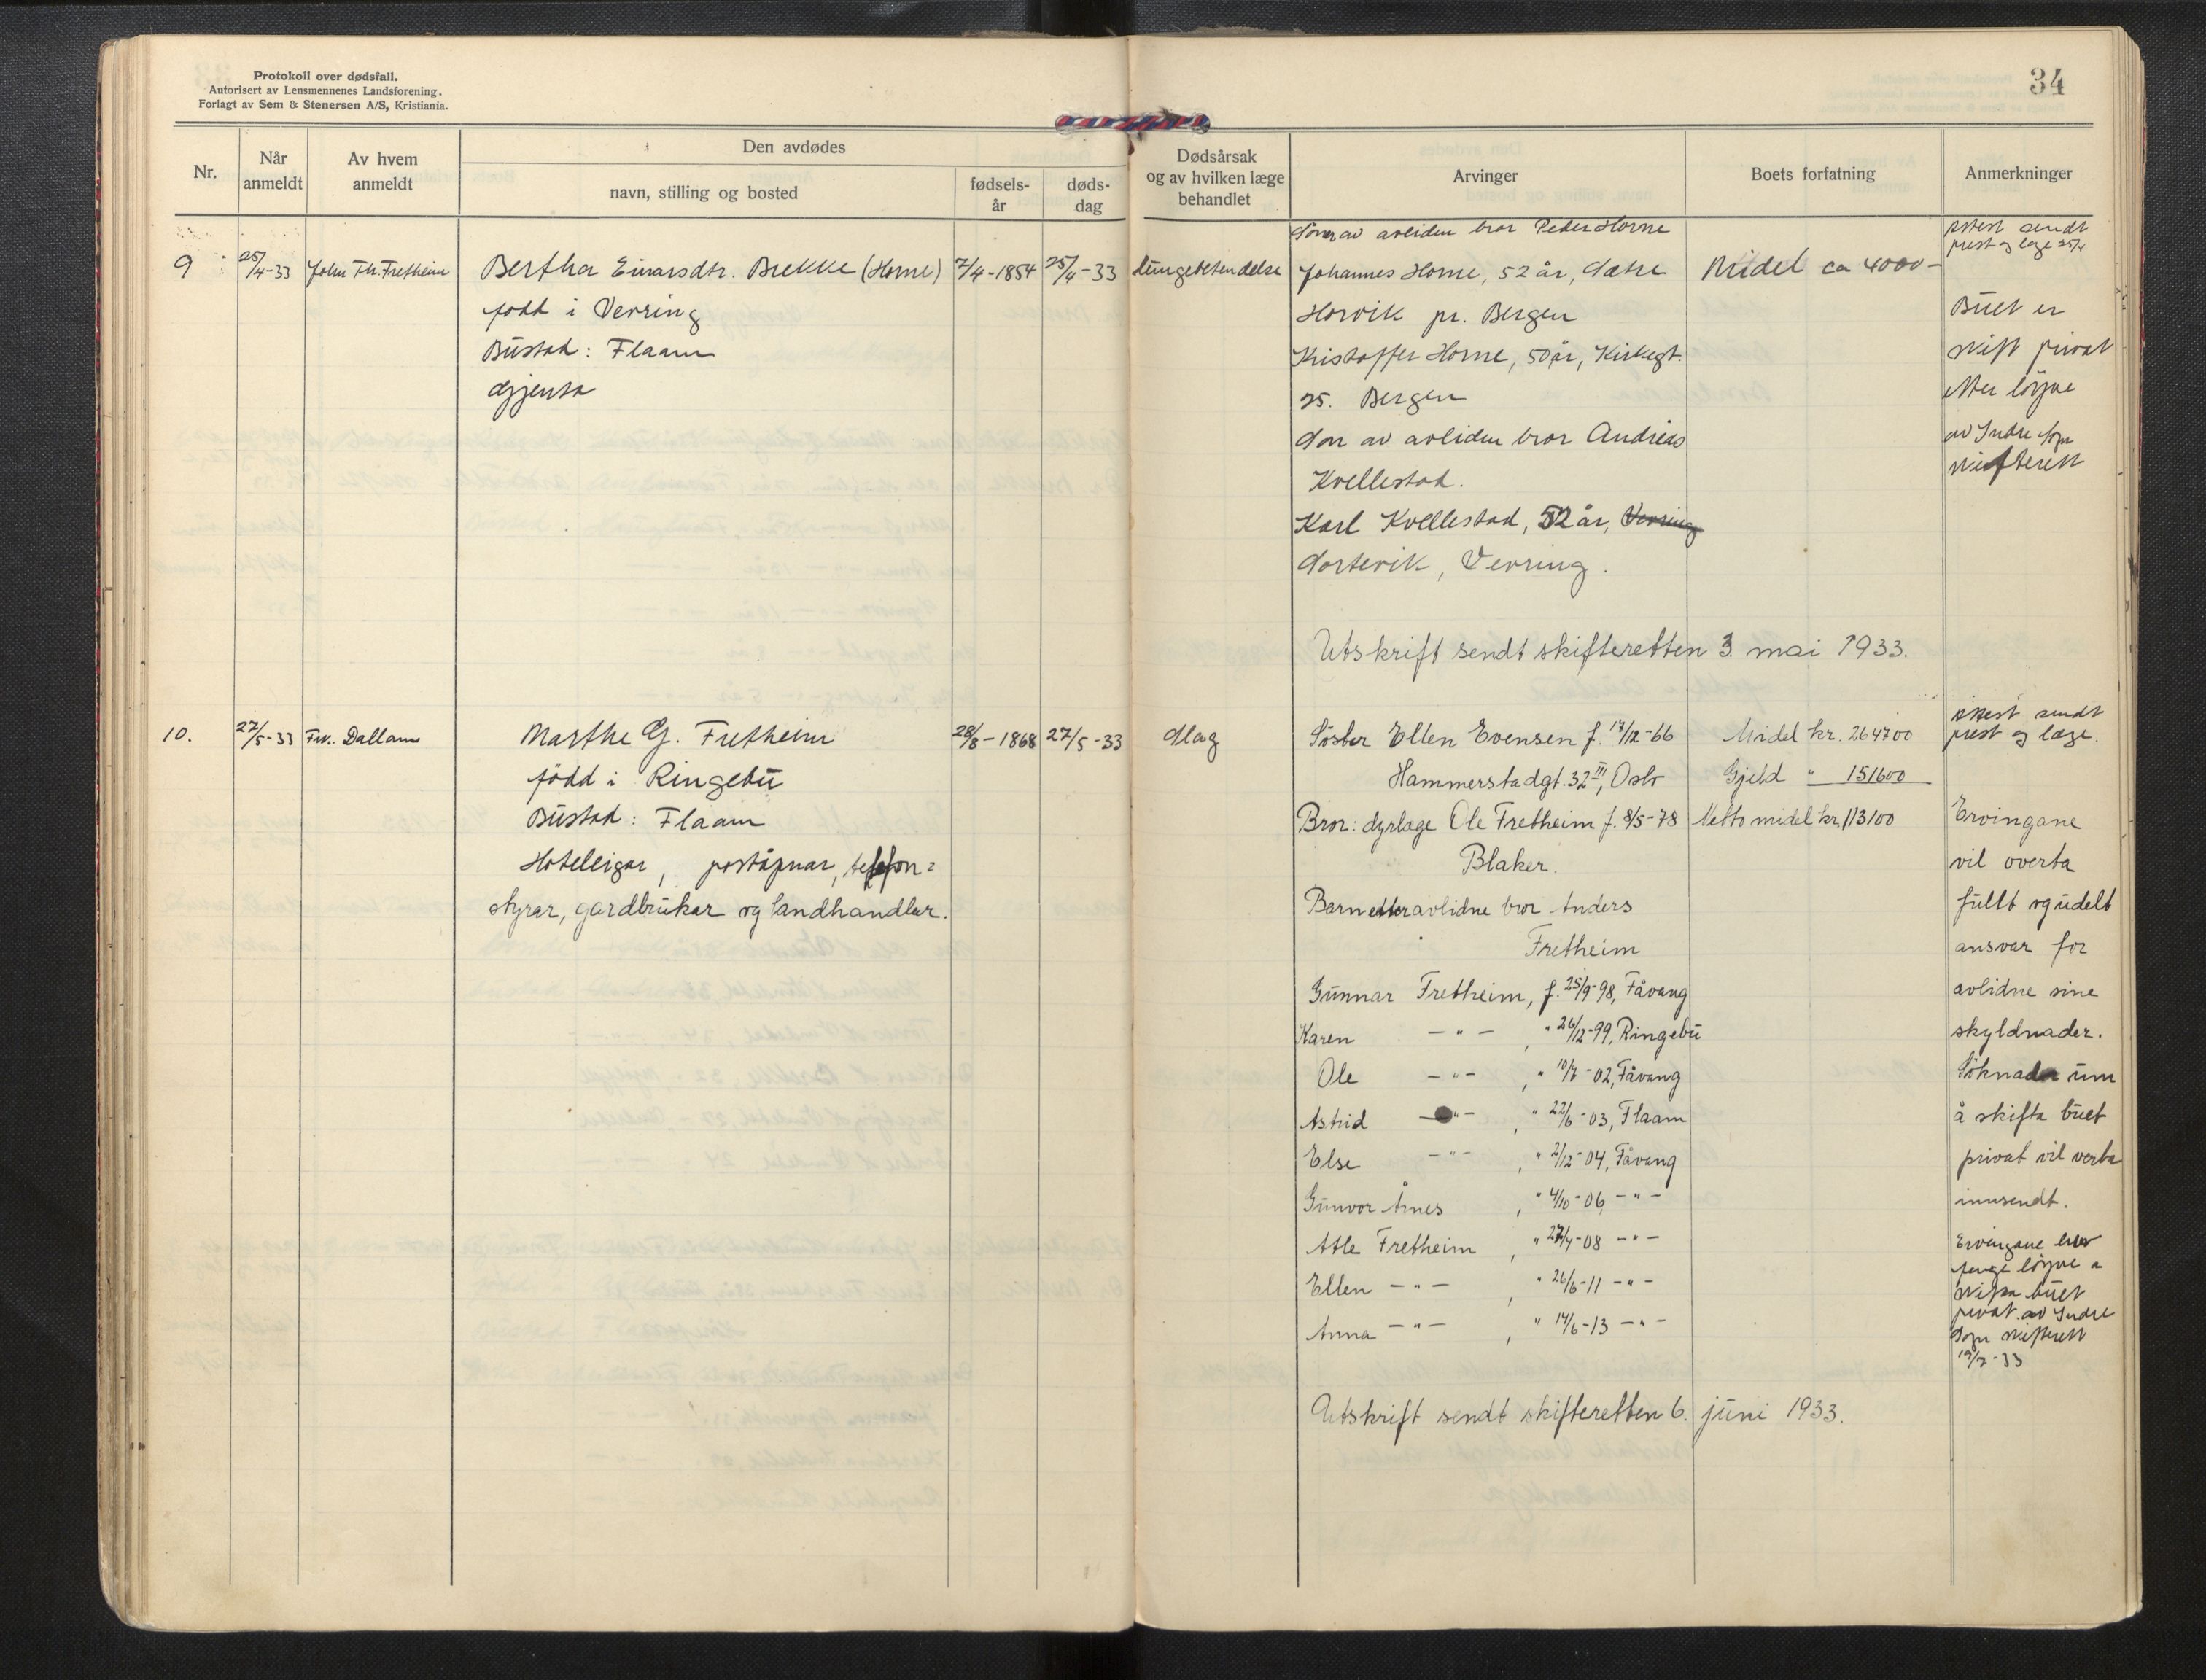 Protokoll over dødsfall.
Autorisert av Lensmennenes Landsforening.
Forlagt av Sem & Stenersen A/S, Kristiania.
34
Nr.
Når anmeldt
Av hvem anmeldt
Den avdødes
navn, stilling og bosted
fødsels-år
døds-dag
Dødsårsak og av hvilken læge behandlet
Arvinger
Boets forfatning
Anmerkninger
9
25/4-33
John Th. Fretheim
Bertha Einarsdtr. Brekke (Horne)
født i Vevring
Bustad: Flaam
Gjenta
7/4-1854
25/4-33
Lungebetendelse
Søner av avliden bror Peder Horne
Johannes Horne, 52 år, Sætre
Horvik pr. Bergen
Kristoffer Horne, 50 år, Kirkegt.
25. Bergen
Son av avliden bror Andreas
Kvellestad.
Karl Kvellestad, 52 år, Vevring
Sortevik, Vevring.
Midel ca 4000-
Attest sendt
prest og læge 25/4
Buet er
skift privat
etter löyve
av Indre Sogn
skifterett
Utskrift sendt skifteretten 3. mai 1933.
10.
27/5-33
Frk. Dallam
Marthe G. Fretheim
född i Ringebu
Bustad: Flaam
Hoteleigar, poståpnar, telefon=
styrar, gardbrukar og landhandlar.
28/8-1868
27/5-33
Slag
Söster Ellen Evensen f. 17/12-66
Hammerstadgt. 32 III, Oslo
Bror: dyrlæge Ole Fretheim f. 8/5-78
Blaker.
Barn etter avlidne bror Anders
Fretheim
Gunnar Fretheim, f. 25/9-98, Fåvang
Karen -"- , " 26/12-99, Ringebu
Ole -"- , " 10/7-02, Fåvang
Astrid -"- , " 22/6-03, Flaam
Else -"- , " 2/12-04, Fåvang
Gunvor Åmes , " 4/10-06 -"-
Atle Fretheim , " 27/4-08 -"-
Ellen -"- , " 26/6-11 -"-
Anna -"- , " 14/6-13 -"-
Midel kr. 264700
Gjeld " 151600
Netto midel kr. 113100
Attest sendt
prest og læge.
Ervingane
vil overta
fullt og udelt
ansvar for
avlidne sine
skyldnader.
Söknader um
å skifta buet
privat vil verta
innsendt.
Ervingane hev
fenge löyve a
skifta buet
privat av Indre
Sogn skifterett
19/7-33
Utskrift sendt skifteretten 6. juni 1933.